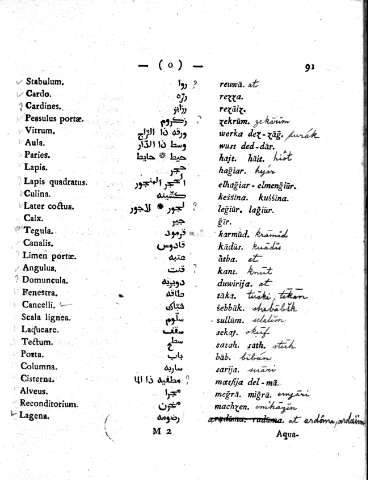 — ( o ) — 91
Stabulum. روا ? reuwâ. at
Cardo. رزه rezza.
? Cardines. رزايز rezâiz.
Pessulus portæ. زكروم ? zekrûm. zekârim
Vitrum. ورقه ذا الزاج werka dez-zâg.
Aula. وسط ذا الدار wust ded-dâr.
Paries. حيط * حايط hajt. hâit. hiot
Lapis. حجر haģiar. hjâr
Lapis quadratus. الحجر المنجور elhaģiar - elmenģiûr.
Culina. كشينه keśśina. kuśśina.
Later coctus. لجور * لاجور leģiûr. laģiur.
Calx. جير ģîr.
Tegula. قرمود karmûd. kramid
Canalis. قادوس kâdûs. kuâdis
Limen portæ. عتبه âtba. et
Angulus. قنت kant. knut
Domuncula. دويريه duwirija. at
Fenestra. طاقه tâka. tuâki, tikân
Cancelli. شباك śebbâk. shabâbik
Scala lignea. سلوم sullûm. slalim
Laqueare. سقف sekaf. skuf
Tectum. سطح satah. sath. stuh
Porta. باب bâb. bibân
Columna. ساريه sarija. suâri
Cisterna. مطفيه ذا الما ? matfija del-mâ.
Alveus. مجرا meģrâ. miģrâ. emjâri
Reconditorium. مخزن machzen. imkhâzin
Lagena. رضومه at ardôma,
M 2 Aqua-